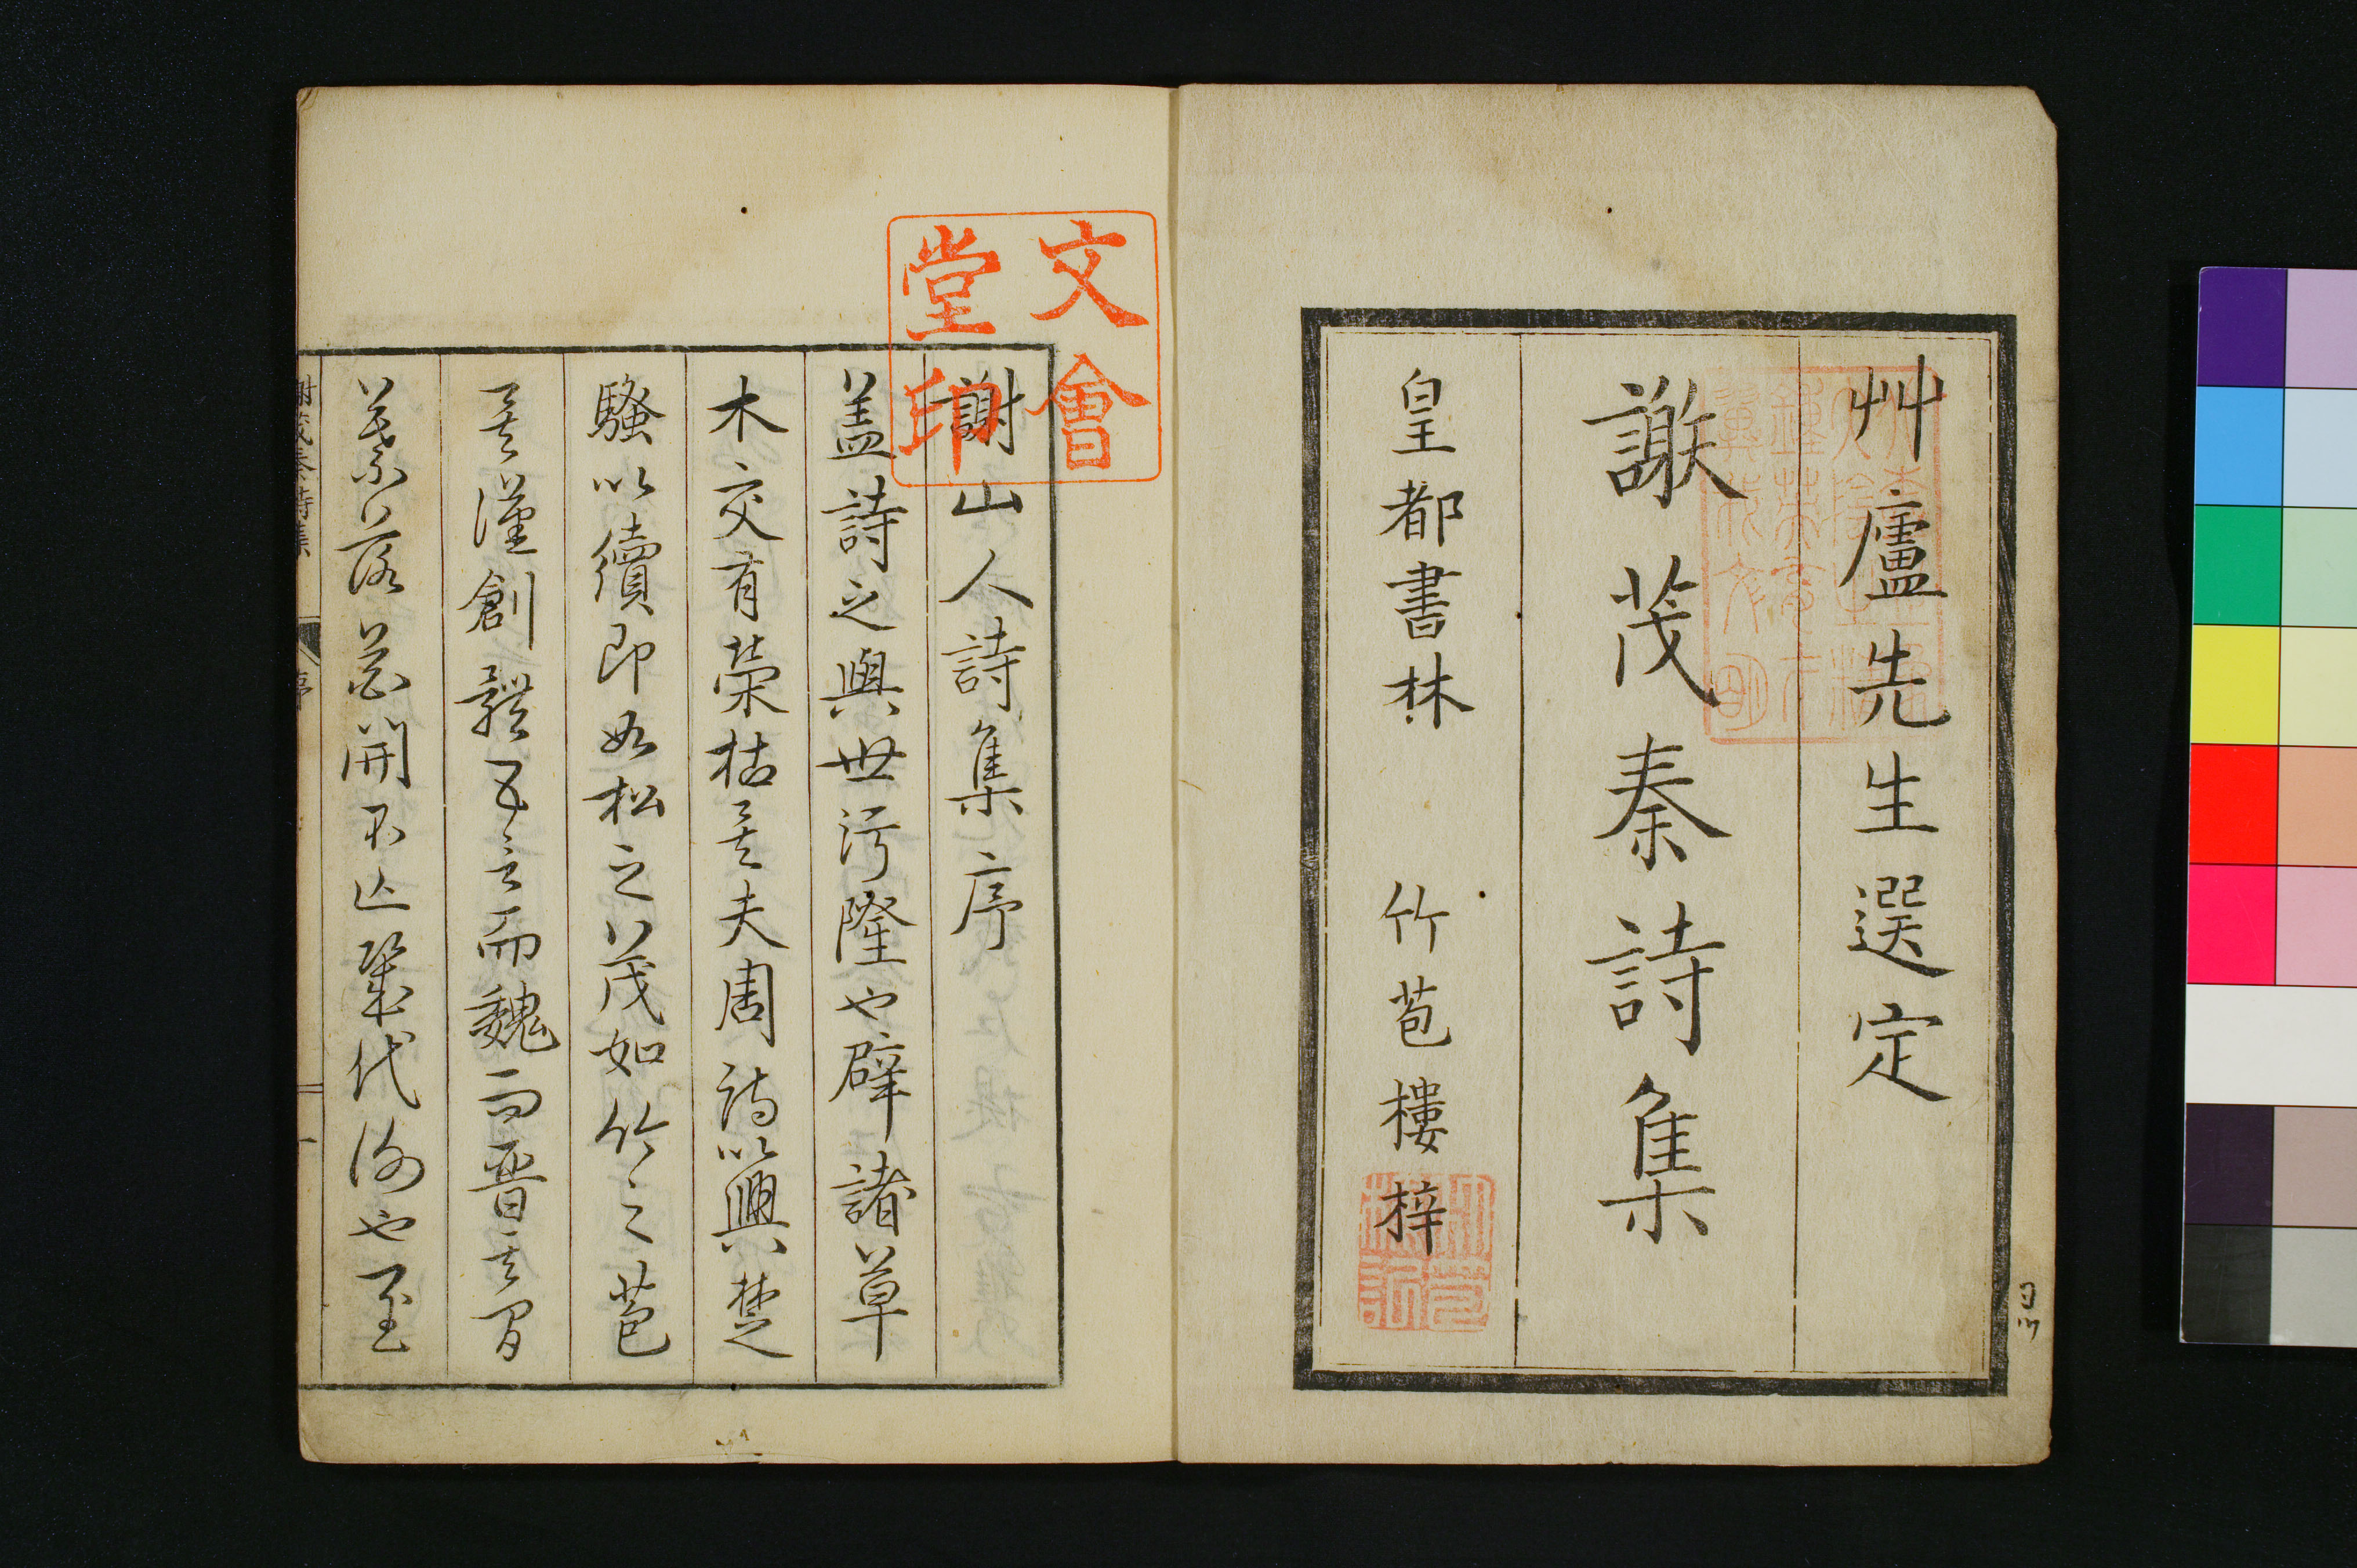 艸廬先生選定
謝茂秦詩集
皇都書林 竹苞樓梓
文會堂印
謝山人詩集序
蓋詩之與世污隆也辟諸草
木交有榮枯焉夫周詩以興楚
騷以續即如松之茂如竹之苞
焉漢創體五言而魏而晉其間
葉落花開不止幾代謝也至
謝茂秦詩集 序 一